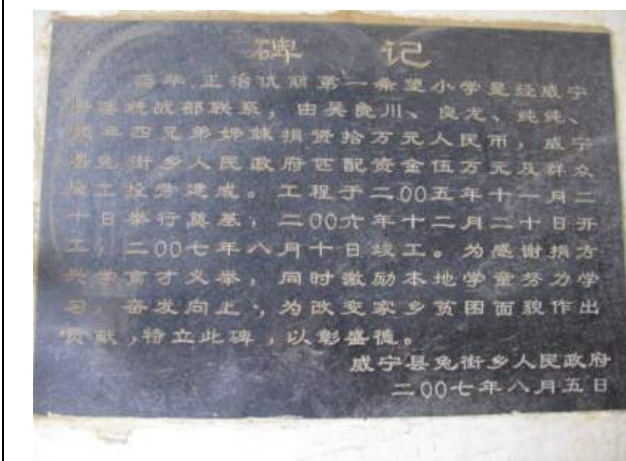 碑 记
正治优丽第一希望小学是经威宁
县委统战部联系，由吴良川、良龙、纯纯、
四兄弟姊妹捐资拾万元人民币，威宁
县兔街乡人民政府匹配资金伍万元及群众
投工投劳建成。工程于二00五年十一月二
十日举行奠基，二00六年十二月二十日开
工，二00七年八月十日竣工。为感谢捐方
兴学育才义举，同时激励本地学童努力学
习，奋发向上，为改变家乡贫困面貌作出
贡献，特立此碑，以彰盛德。
威宁县兔街乡人民政府
二00七年八月五日